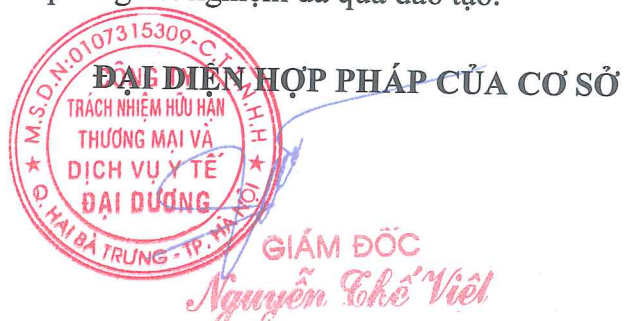 đã qua đào tạo.
ĐẠI DIỆN HỢP PHÁP CỦA CƠ SỞ
M.S.D.N:0107315309-C.T.T.N.H.H
CÔNG TY
TRÁCH NHIỆM HỮU HẠN
THƯƠNG MẠI VÀ
DỊCH VỤ Y TẾ
ĐẠI DƯƠNG
Q. HAI BÀ TRƯNG - TP. HÀ NỘI
GIÁM ĐỐC
Nguyễn Thế Việt